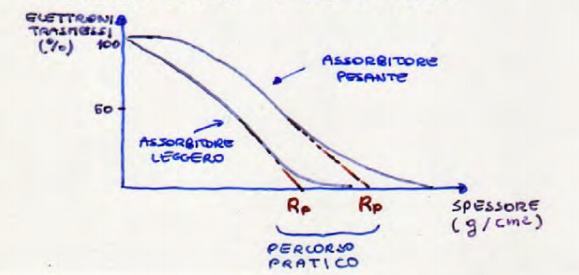 ELETTRONI
TRASMESSI
(%)
100
50
ASSORBITORE
PESANTE
ASSORBITORE
LEGGERO
Rp
Rp
SPESSORE
(g/cm2)
PERCORSO
PRATICO